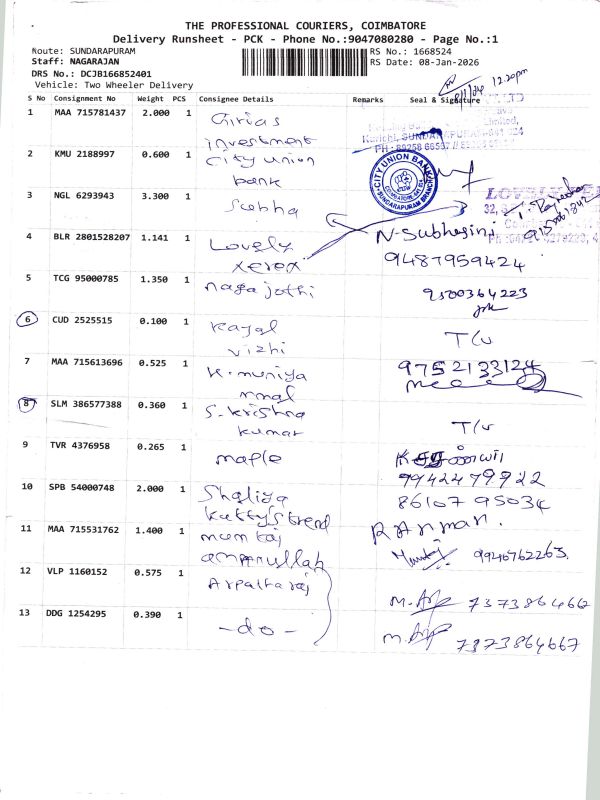 THE PROFESSIONAL COURIERS, COIMBATORE
Delivery Runsheet - PCK - Phone No.:9047080280 - Page No.:1
Route: SUNDARAPURAM
RS No.: 1668524
Staff: NAGARAJAN
RS Date: 08-Jan-2026
DRS No.: DCJB166852401
Vehicle: Two Wheeler Delivery
12.20pm
S No Consignment No Weight PCS Consignee Details Remarks Seal & Signature
1 MAA 715781437 2.000 1 Girias
investment
2 KMU 2188997 0.600 1 City union
bank
CITY UNION BANK
SUNDARAPURAM BRANCH
3 NGL 6293943 3.300 1 Subha
LOVELY
4 BLR 2801528207 1.141 1 Lovely
xerox
N-Subhasini
9487959424
5 TCG 95000785 1.350 1 nagajothi
9500364223
6 CUD 2525515 0.100 1 Kayal
vizhi
T/v
7 MAA 715613696 0.525 1 K.muniya
mmal
9752133124
8 SLM 386577388 0.360 1 S.krishna
kumar
T/v
9 TVR 4376958 0.265 1 maple
9942479922
10 SPB 54000748 2.000 1 Shaliya
kuttystrend
8610795034
RAHMAN.
11 MAA 715531762 1.400 1 mumtaj
amanullah
Mumtaj 9940762263.
12 VLP 1160152 0.575 1 Arpatharaj
7373864667
13 DDG 1254295 0.390 1 -do-
7373864667